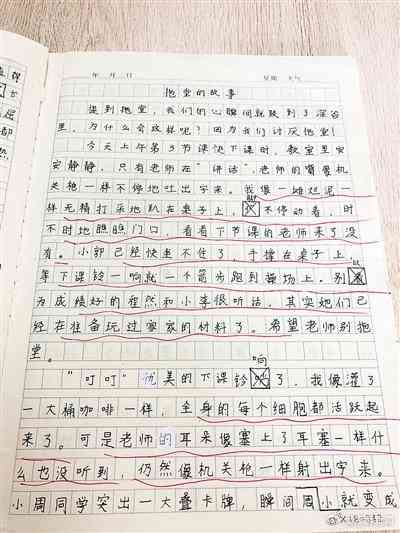 年 月 日 星期 天气
拖堂的故事
提到拖堂，我们的心瞬间就跌到了深谷
里，为什么会这样呢？因为我们讨厌拖堂！
今天上午第3节课快下课时，教室里安
安静静，只有老师在“讲话”，老师的嘴像机
关枪一样不停地吐出字来。我像一摊烂泥一
样无精打采地趴在桌子上，不停动着，时
不时地瞧瞧门口，看看下节课的老师来了没
有。小郭已经快坐不住了，手撑在桌子上，
等下课铃一响就一个箭步跑到操场上。别
为成绩好的程然和小李很听话，其实她们已
经在准备玩过家家的材料了。希望老师别拖
堂。
响
“叮叮”优美的下课铃了，我像灌了
一大桶咖啡一样，全身的每个细胞都活跃起
来了。可是老师的耳朵像塞上了耳塞一样什
么也没听到，仍然像机关枪一样射出字来。
小周同学突出一大叠卡牌，瞬间周小就变成